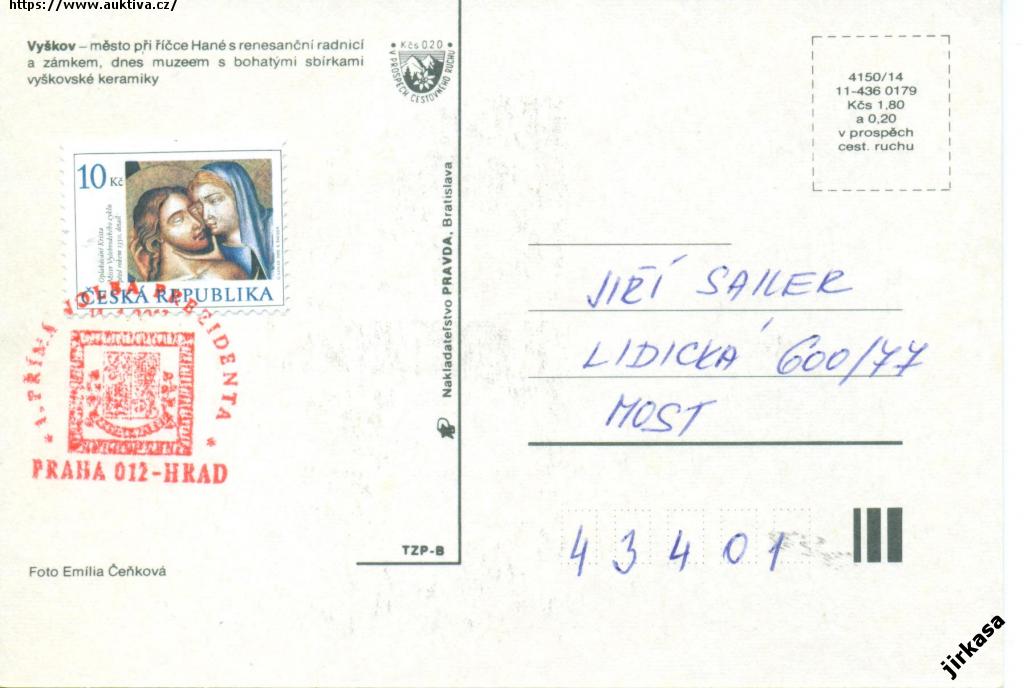 https://www.auktiva.cz/
Vyškov – město při říčce Hané s renesanční radnicí
a zámkem, dnes muzeem s bohatými sbírkami
vyškovské keramiky
Kčs 0,20
V PROSPĚCH CESTOVNÉHO RUCHU
4150/14
11-436 0179
Kčs 1,80
a 0,20
v prospěch
cest. ruchu
10 Kč
Oplakávání Krista
ČESKÁ REPUBLIKA
1. PŘÍMÁ VOLBA PREZIDENTA
PRAHA 012-HRAD
Nakladateľstvo PRAVDA, Bratislava
JIŘÍ SAILER
LIDICKÁ 600/77
MOST
43401
TZP-B
Foto Emília Čeňková
jirkasa